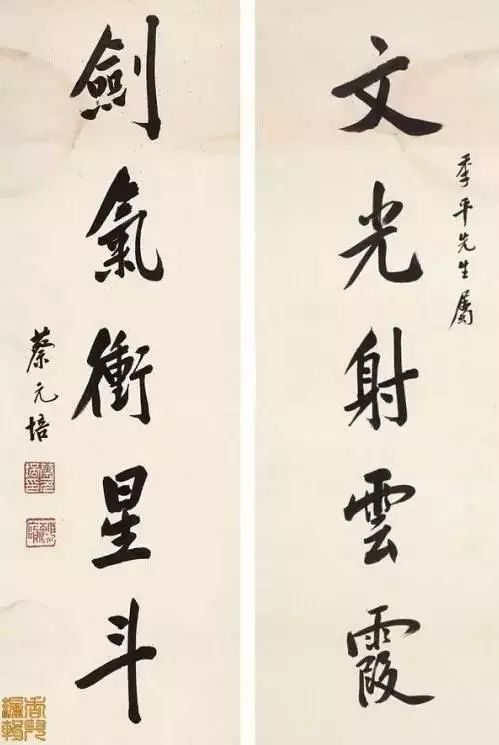 季平先生屬
文光射雲霞
劍氣衝星斗
蔡元培